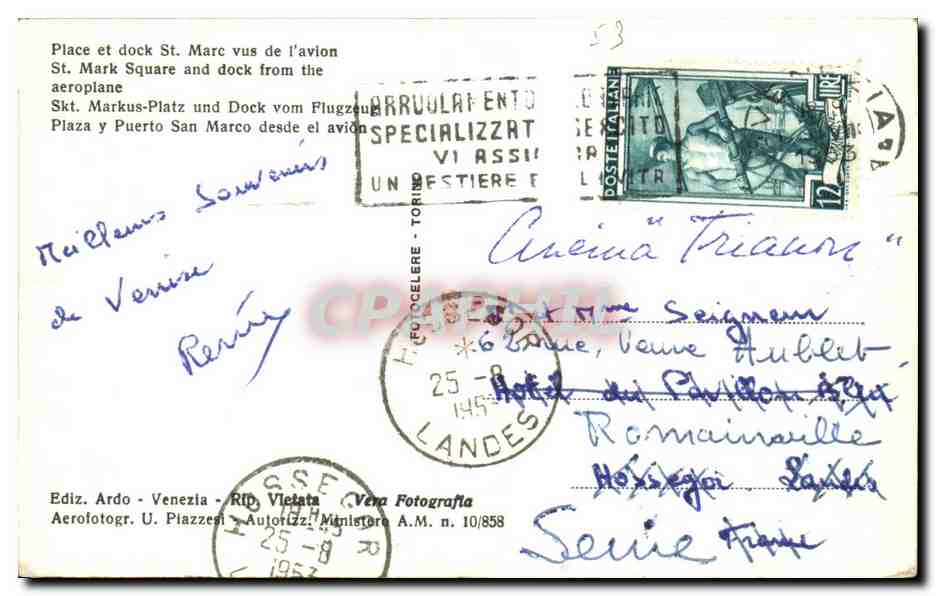 53
Place et dock St. Marc vus de l'avion
St. Mark Square and dock from the
aeroplane
Skt. Markus-Platz und Dock vom Flugzeug
Plaza y Puerto San Marco desde el avión
ARRUOLAMENTO
SPECIALIZZAT ESERCITO
VI ASSI
UN MESTIERE
POSTE ITALIANE
12
LIRE
Meilleurs Souvenirs
de Venise
FOTOCELERE - TORINO
Cinéma "Trianon"
CPAPHIL
et Mme Seigneur
62 rue, Veuve Aublet
Hôtel du Pavillon Bleu
Romainville
Hossegor Landes
Seine France
HOSSEGOR
*
25 -8
195
LANDES
HOSSEGOR
18H45
25 -8
1953
L
Ediz. Ardo - Venezia - Rip. Vietata Vera Fotografia
Aerofotogr. U. Piazzesi - Autorizz. Ministero A.M. n. 10/858